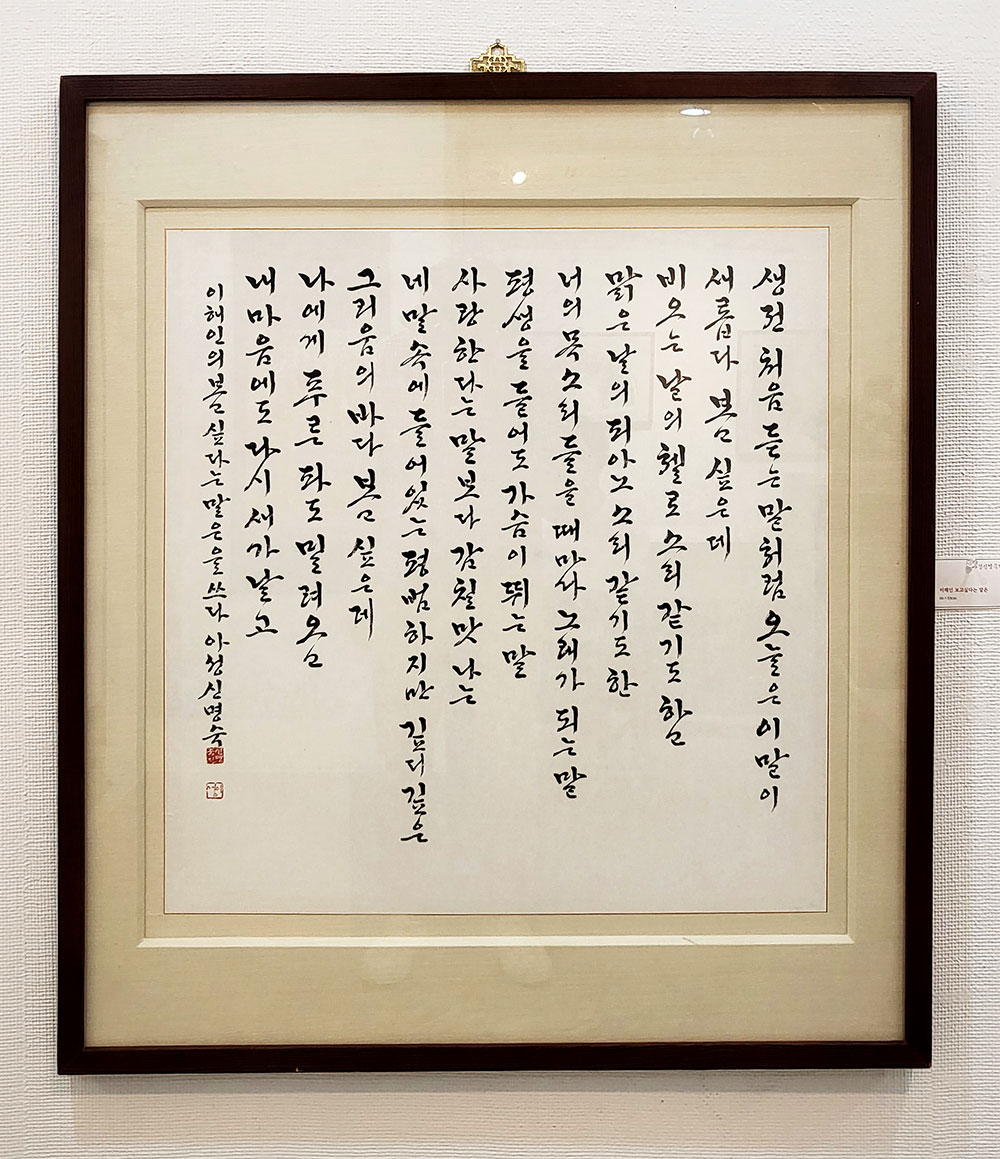 생전 처음 듣는 말처럼 오늘은 이 말이
새롭다 보고 싶은데
비오는 날의 첼로 소리 같기도 하고
맑은 날의 피아노 소리 같기도 한
너의 목소리 들을 때마다 노래가 되는 말
평생을 들어도 가슴이 뛰는 말
사랑한다는 말보다 감칠맛 나는
네 말 속에 들어 있는 평범하지만 깊디깊은
그리움의 바다 보고 싶은데
나에게 푸른 파도 밀려오고
내 마음에도 다시 새가 날고
이해인의 보고 싶다는 말은을 쓰다 신명숙
이해인 보고싶다는 말은